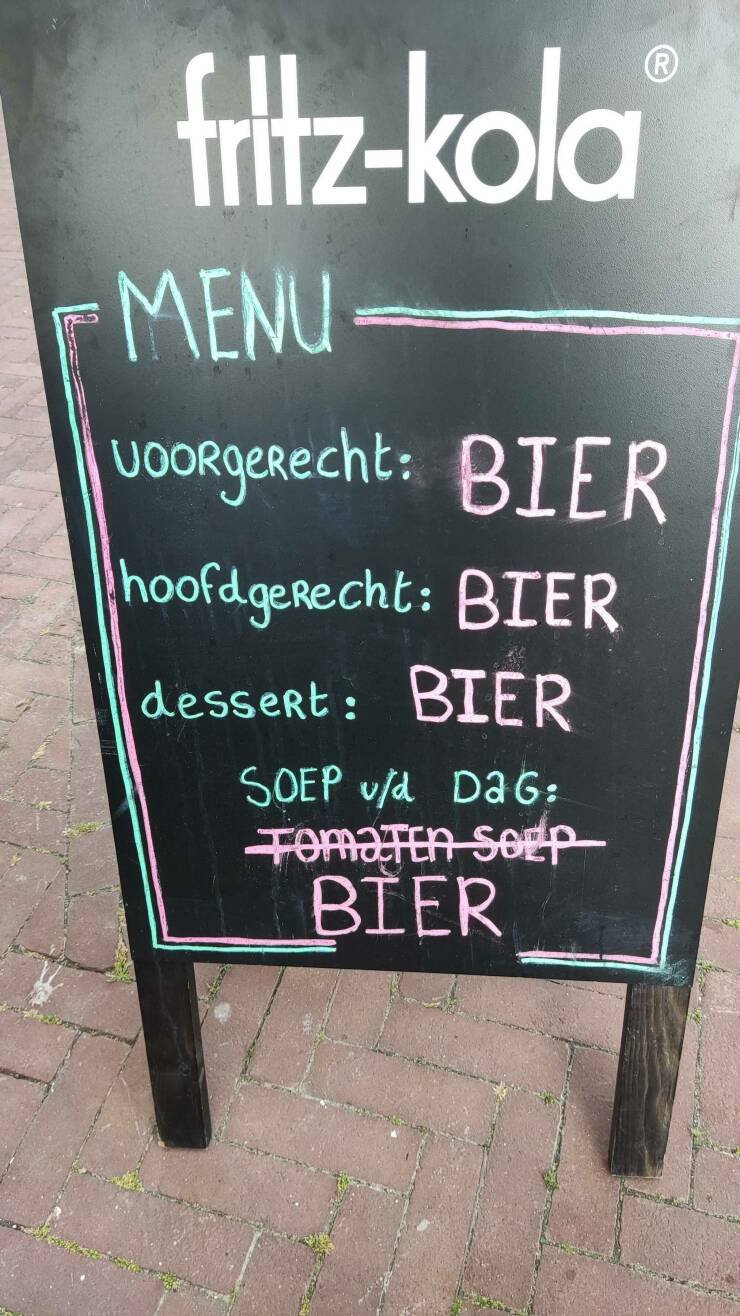 fritz-kola®
MENU
voorgerecht: BIER
hoofdgerecht: BIER
dessert: BIER
SOEP v/d DaG:
TomaTEn SoEP
BIER